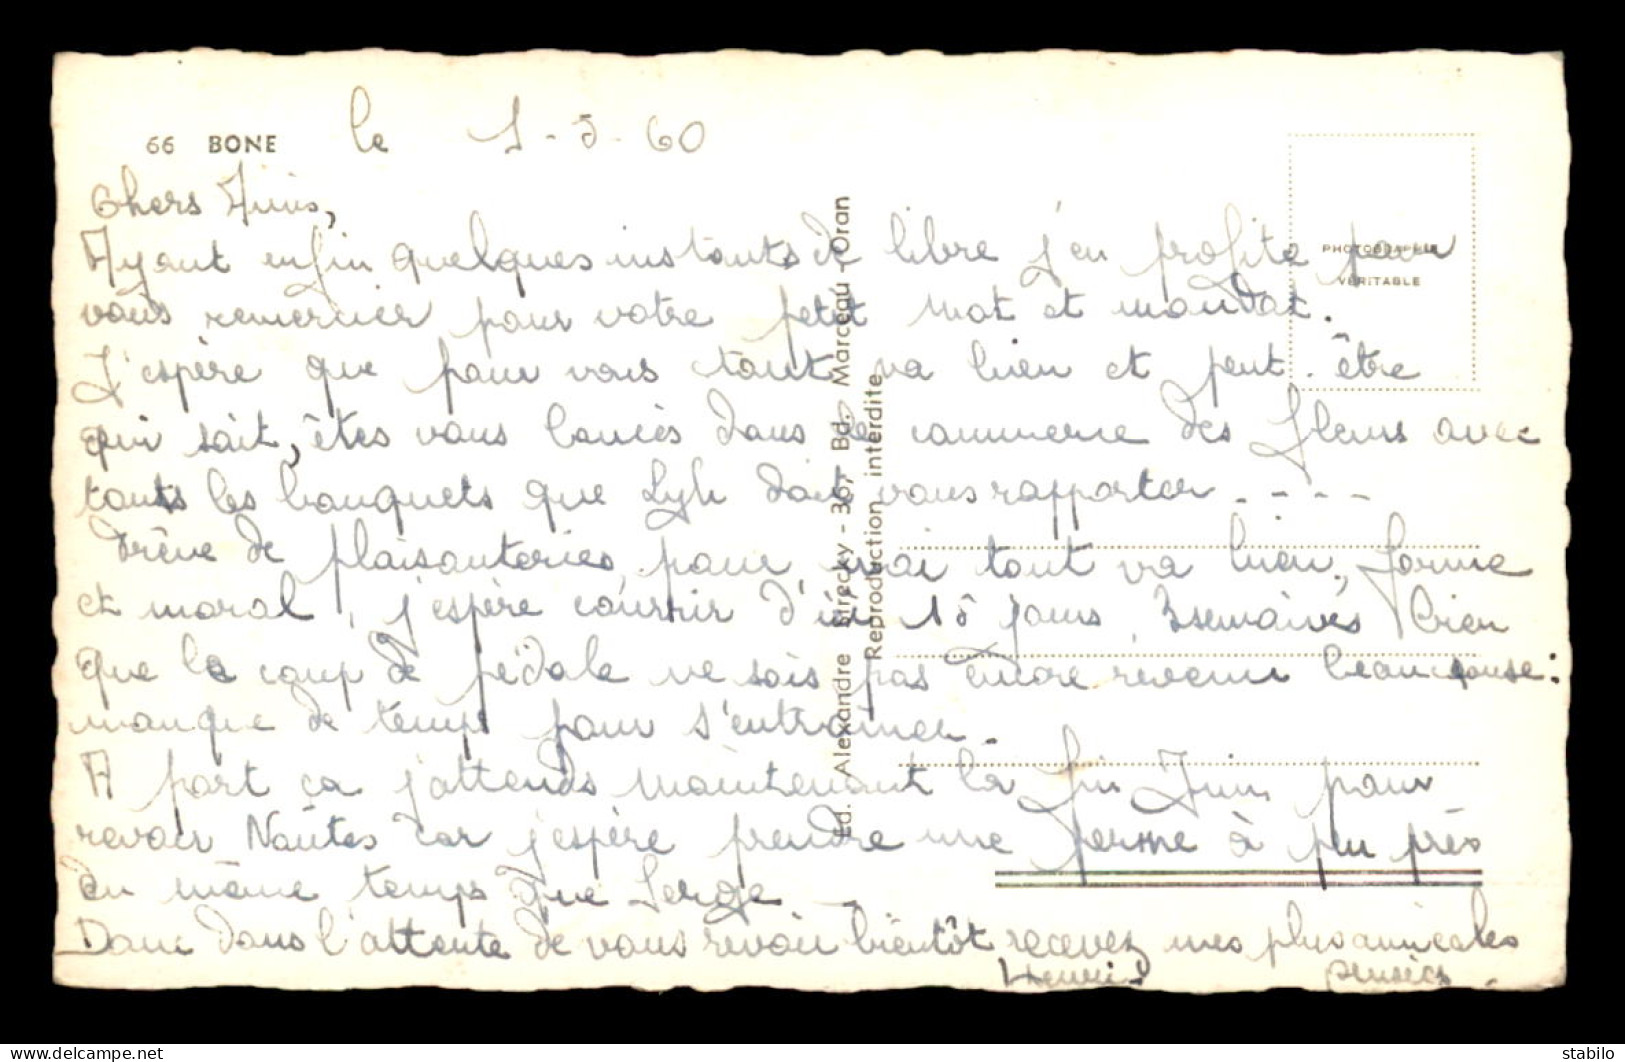 66 BONE le 1-5-60
Chers Amis,
Ayant enfin quelques instants de libre j'en profite pour
vous remercier pour votre petit mot et mandat.
J'espère que pour vous tout va bien et peut-être
qui sait, êtes vous lancés dans le commerce des fleurs avec
touts les bouquets que Lyli doit vous rapporter - - - -
Trêve de plaisanteries, pour moi tout va bien, forme
et moral, j'espère courrir d'ici 15 jours 3 semaines bien
que le coup de pédale ne sois pas encore revenu beaucause:
manque de temps pour s'entraîner.
A part ça j'attends maintenant la fin Juin pour
revoir Nantes car j'espère prendre une perme à peu près
en même temps que Serge.
Donc dans l'attente de vous revoir bientôt recevez mes plus amicales
pensées.
Henri
PHOTOGRAPHIE
VÉRITABLE
Ed. Alexandre Sirecky - 36, Bd. Marceau - Oran
Reproduction interdite
stabilo
www.delcampe.net